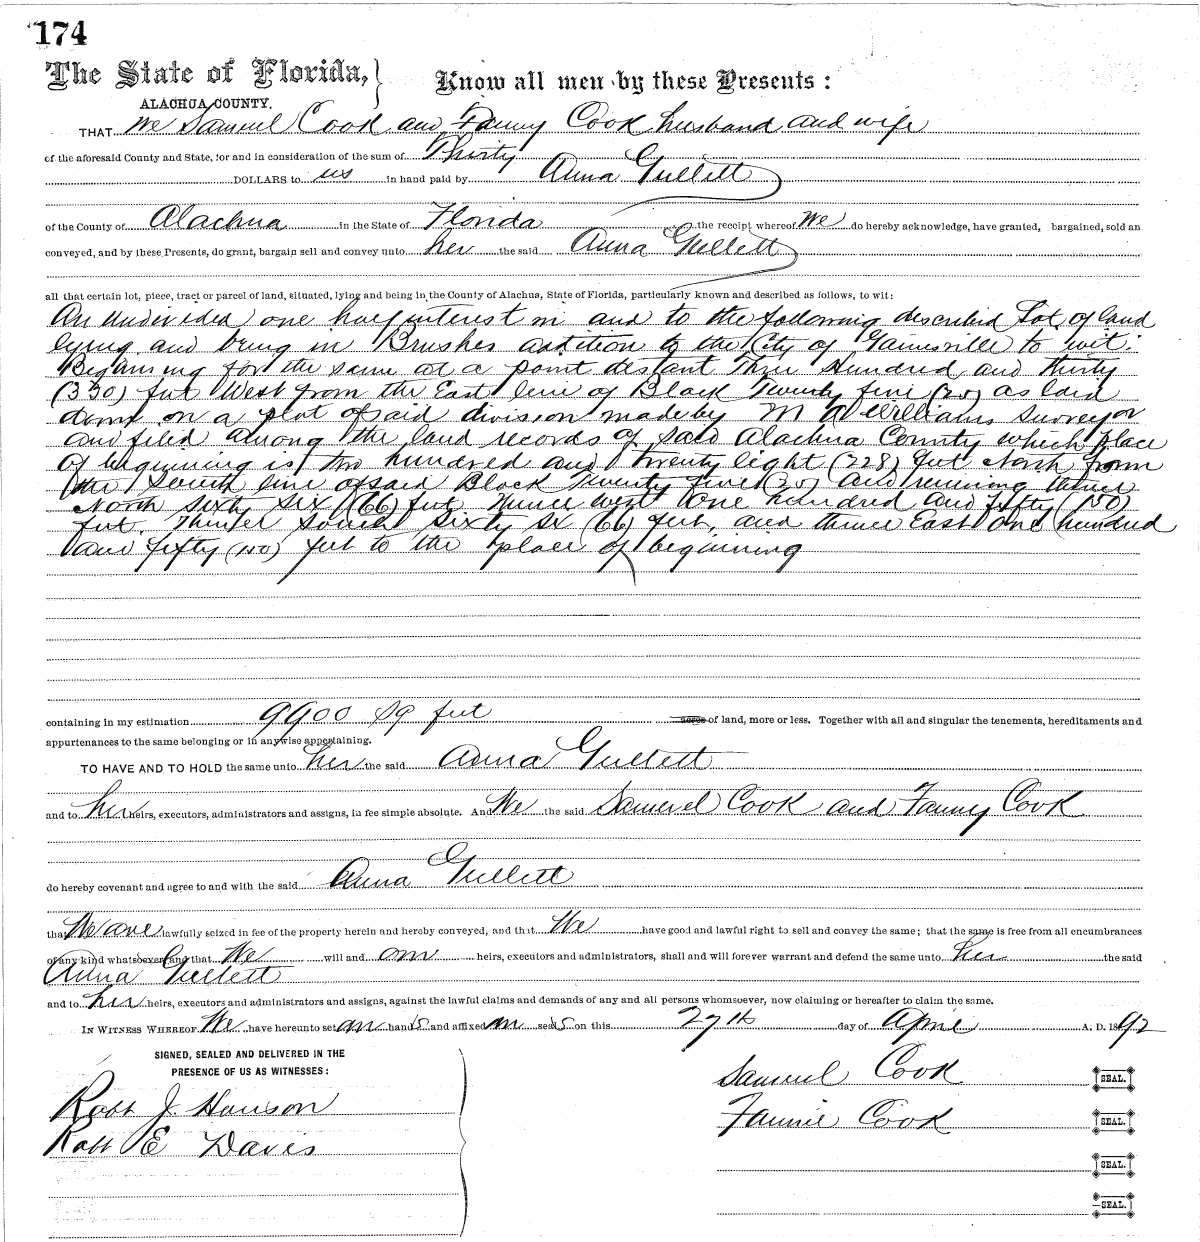 174
The State of Florida, } Know all men by these Presents :
ALACHUA COUNTY.
THAT We Samuel Cook and Fanny Cook husband and wife
of the aforesaid County and State, for and in consideration of the sum of Thirty
DOLLARS to us in hand paid by Anna Gullett
of the County of Alachua in the State of Florida the receipt whereof We do hereby acknowledge, have granted, bargained, sold an
conveyed, and by these Presents, do grant, bargain sell and convey unto her the said Anna Gullett
all that certain lot, piece, tract or parcel of land, situated, lying and being in the County of Alachua, State of Florida, particularly known and described as follows, to wit:
An undivided one half interest in and to the following described Lot of land
lying and being in Brushes adition to the City of Gainesville to wit:
Beginning for the same at a point distant Three Hundred and thirty
(330) feet West from the East line of Block Twenty five (25) as laid
down on a plat of said division made by M A Williams Surveyor
and filed among the land records of said Alachua County which place
of beginning is two hundred and twenty eight (228) feet North from
the South line of said Block Twenty five (25) and running thence
North Sixty Six (66) feet, thence west one hundred and fifty (150)
feet, Thence South Sixty Six (66) feet, and thence East one hundred
and fifty (150) feet to the place of beginning
containing in my estimation 9900 sq feet acres of land, more or less. Together with all and singular the tenements, hereditaments and
appurtenances to the same belonging or in anywise appertaining.
TO HAVE AND TO HOLD the same unto her the said Anna Gullett
and to her heirs, executors, administrators and assigns, in fee simple absolute. And We the said Samuel Cook and Fanny Cook
do hereby covenant and agree to and with the said Anna Gullett
that We are lawfully seized in fee of the property herein and hereby conveyed, and that We have good and lawful right to sell and convey the same; that the same is free from all encumbrances
of any kind whatsoever and that We will and our heirs, executors and administrators, shall and will forever warrant and defend the same unto her the said
Anna Gullett
and to her heirs, executors and administrators and assigns, against the lawful claims and demands of any and all persons whomsoever, now claiming or hereafter to claim the same.
IN WITNESS WHEREOF We have hereunto set our hands and affixed our seals on this 27th day of April A. D. 1892
SIGNED, SEALED AND DELIVERED IN THE
PRESENCE OF US AS WITNESSES :
Robt J. Houson
Robt E Davis
Samuel Cook SEAL.
Fannie Cook SEAL.
SEAL.
SEAL.